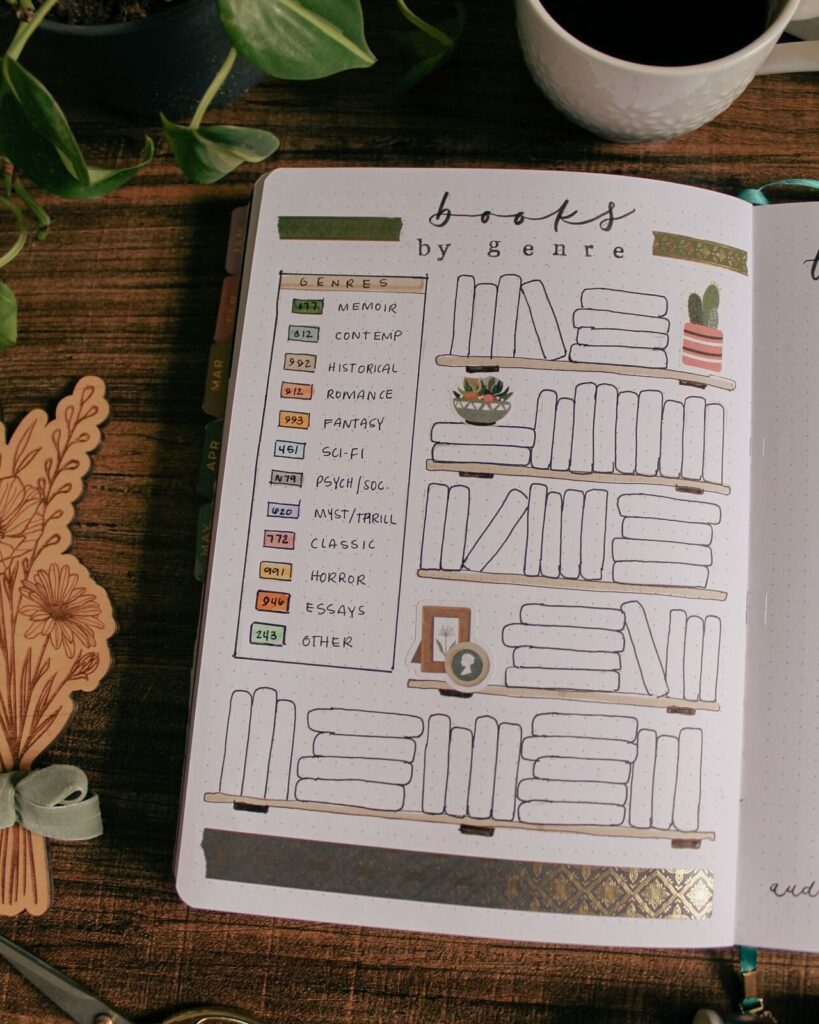 books
by genre
GENRES
177 MEMOIR
312 CONTEMP
992 HISTORICAL
912 ROMANCE
993 FANTASY
451 SCI-FI
N79 PSYCH/SOC.
620 MYST/THRILL
772 CLASSIC
991 HORROR
946 ESSAYS
243 OTHER
MAR
APR
MAY